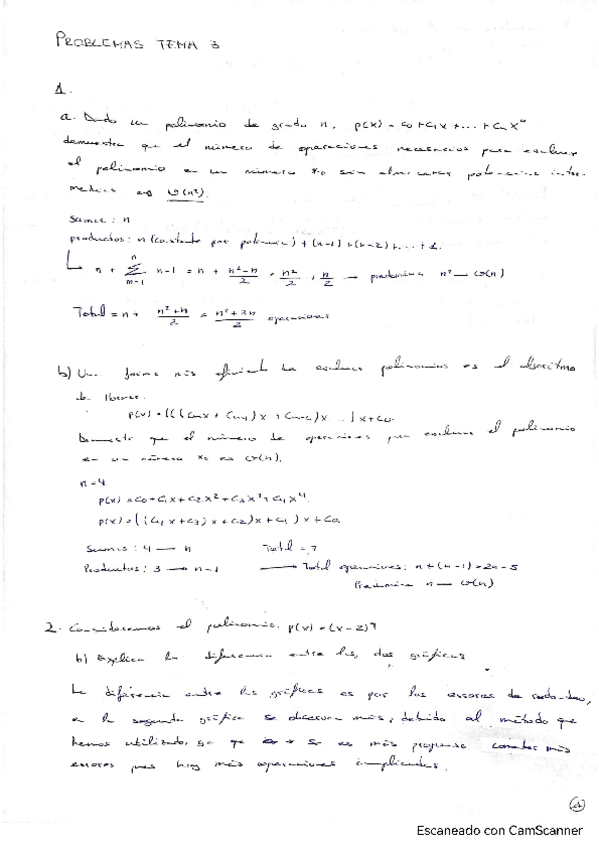 PROBLEMAS TEMA 3
1.
a. Dado un polinomio de grado n, p(x) = c0 + c1x + ... + cnx^n
demuestra que el número de operaciones necesarias para evaluar
el polinomio en un número x0 sin almacenar potencias inter-
medias es O(n²).
Sumas: n
productos: n (constante por potencia) + (n-1) + (n-2) + ... + 1.
n + n Σ m=1 n-1 = n + n²-n / 2 = n²/2 + n/2 → predomina n² — O(n)
Total = n + n²+n / 2 = n²+3n / 2 operaciones
b) Una forma más eficiente de evaluar polinomios es el algoritmo
de Horner.
p(x) = (((cnx + cn-1)x + cn-2)x ...)x + c0.
Demuestra que el número de operaciones para evaluar el polinomio
en un número x0 es O(n).
n=4
p(x) = c0 + c1x + c2x² + c3x³ + c4x⁴.
p(x) = (((c4x + c3)x + c2)x + c1)x + c0.
Sumas: 4 → n Total = 7
Productos: 3 → n-1 → Total operaciones: n + (n-1) = 2n-5
Predomina n — O(n)
2. Consideremos el polinomio: p(x) = (x-2)⁹
b) Explica la diferencia entre las dos gráficas
La diferencia entre las gráficas es por los errores de redondeo,
en la segunda gráfica se observan más, debido al método que
hemos utilizado, ya que es más propenso cometer más
errores pues hay más operaciones implicadas.
Escaneado con CamScanner